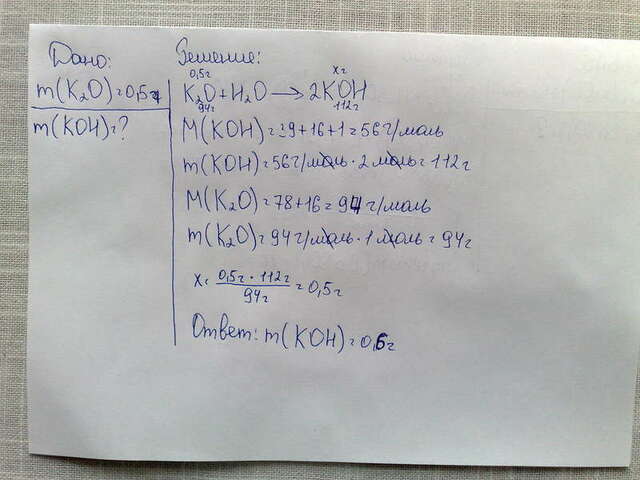 Дано:
m(K₂O)=0,5г
m(KOH)=?
Решение:
0,5г xг
K₂O+H₂O→2KOH
94г 112г
M(KOH)=39+16+1=56г/моль
m(KOH)=56г/моль·2моль=112г
M(K₂O)=78+16=94г/моль
m(K₂O)=94г/моль·1моль=94г
x=0,5г·112г/94г=0,5г
Ответ: m(KOH)=0,6г